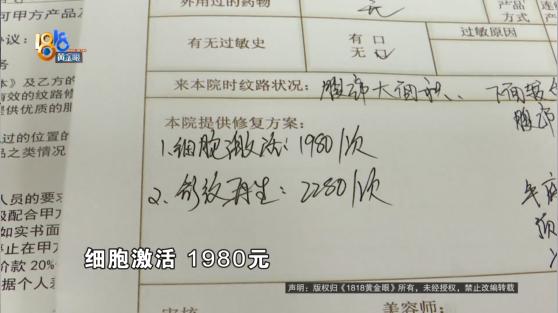 1818
黄金眼
可甲方产品及
协议：
务
本》及乙方的
有效的纹路修
提供优质的服
过的位置的
品之类情况
人员的要求
极配合甲方
如实书面
停止在甲方
价款 20%
据个人
外用过的药物
无
产品
方式
有无过敏史
有口
无口
过敏原因
来本院时纹路状况：
大面积、下面
本院提供修复方案：
1.细胞激活：1980/次
2.舒纹再生：2280/次
美容师：
细胞激活 1980元
声明：版权归《1818黄金眼》所有，未经授权，禁止改编转载